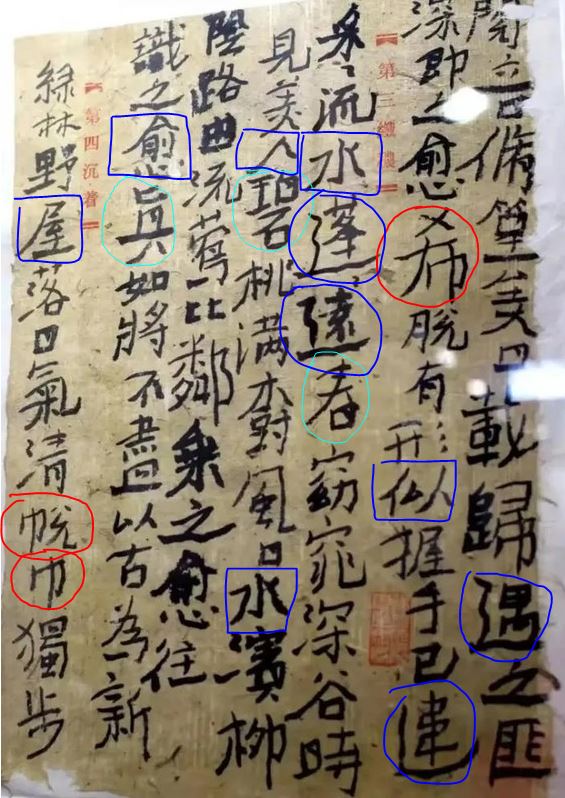 閱音脩篁美曰載歸遇之匪
深即之愈希脫有形似握手已違
第三纖穠
采々流水蓬々遠春窈窕深谷時
見美人碧桃滿樹風日水濱柳
陰路曲流鶯比鄰乘之愈往
識之愈眞如將不盡以古為新
第四沉着
綠林野屋落日氣清帨巾獨步